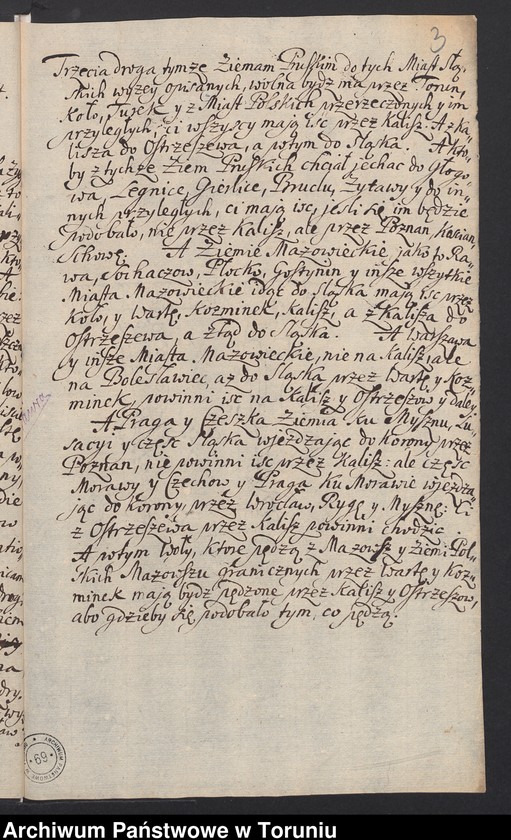 3
Trzecia droga tymże Ziemam Pruskim do tych Miast Ślą-
skich wyżey opisanych, wolna bydź ma przez Torun,
Koło, y z Miast Polskich przerzeczonych y im
przyległych, ci wszyscy mają iść przez Kalisz. A z Ka-
lisza do Ostrzeszewa, a potym do Sląska. A kto-
by z tychże Ziem Pruskich chciał jechac do Głogo-
wa, Legnice, Gierlice, Żytawy y do in-
nych przyległych, ci mają iść, jesli się im będzie
podobało, nie przez Kalisz, ale przez Poznan, Koscian,
A Ziemie Mazowieckie jako to Ra-
wa, Sochaczow, Płocko, Gostynin y insze wszytkie
Miasta Mazowieckie idąc do Sląska mają iść przez
Koło, y Wartę, Kozminek, Kalisz, a z Kalisza do
Ostrzeszewa, a ztąd do Sląska. A Warszawa
y insze Miasta Mazowieckie, nie na Kalisz, ale
na Bolesławiec, aż do Sląska przez Wartę y Koz-
minek, powinni iść na Kalisz y Ostrzeszow y daley
A Praga y Czeszka Ziemia ku Mysznu, Łu-
sacyi y częsc Sląska wjeżdzając do Korony przez
Poznan, nie powinni iść przez Kalisz: ale częsc
Morawy y Czechow y Praga ku Morawie wjeżdża-
jąc do Korony, przez Wrocław, y Mysznę: Ci
z Ostrzeszewa przez Kalisz powinni chodzic.
A potym Woły, ktore pędzą z Mazowsz y Ziemi Pol-
skich Mazowszu granicznych przez Wartę y Koz-
minek mają bydz pędzone przez Kalisz y Ostrzeszow,
abo gdzieby się podobało tym, co pędzą.
69
Archiwum Państwowe w Toruniu